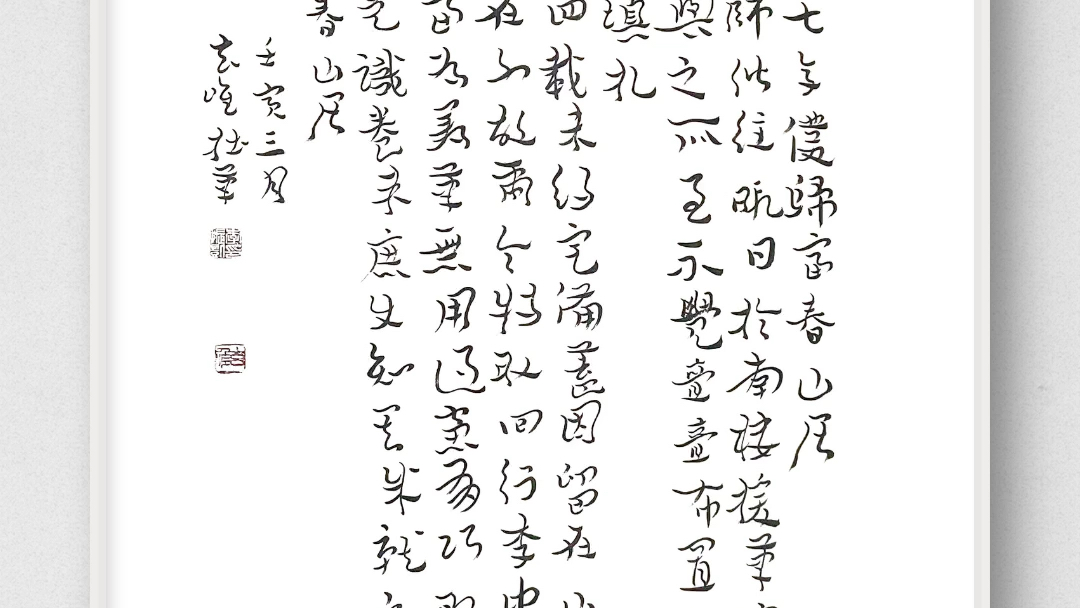 七年僕歸富春山居
師偕往暇日於南樓援筆
興之所至不覺亹亹布置
填札
四載未得完備蓋因留在山
在外故爾今特取回行李中
當為着筆無用過慮有巧取
先識卷末庶使知其成就之
春山居
壬寅三月
拙筆